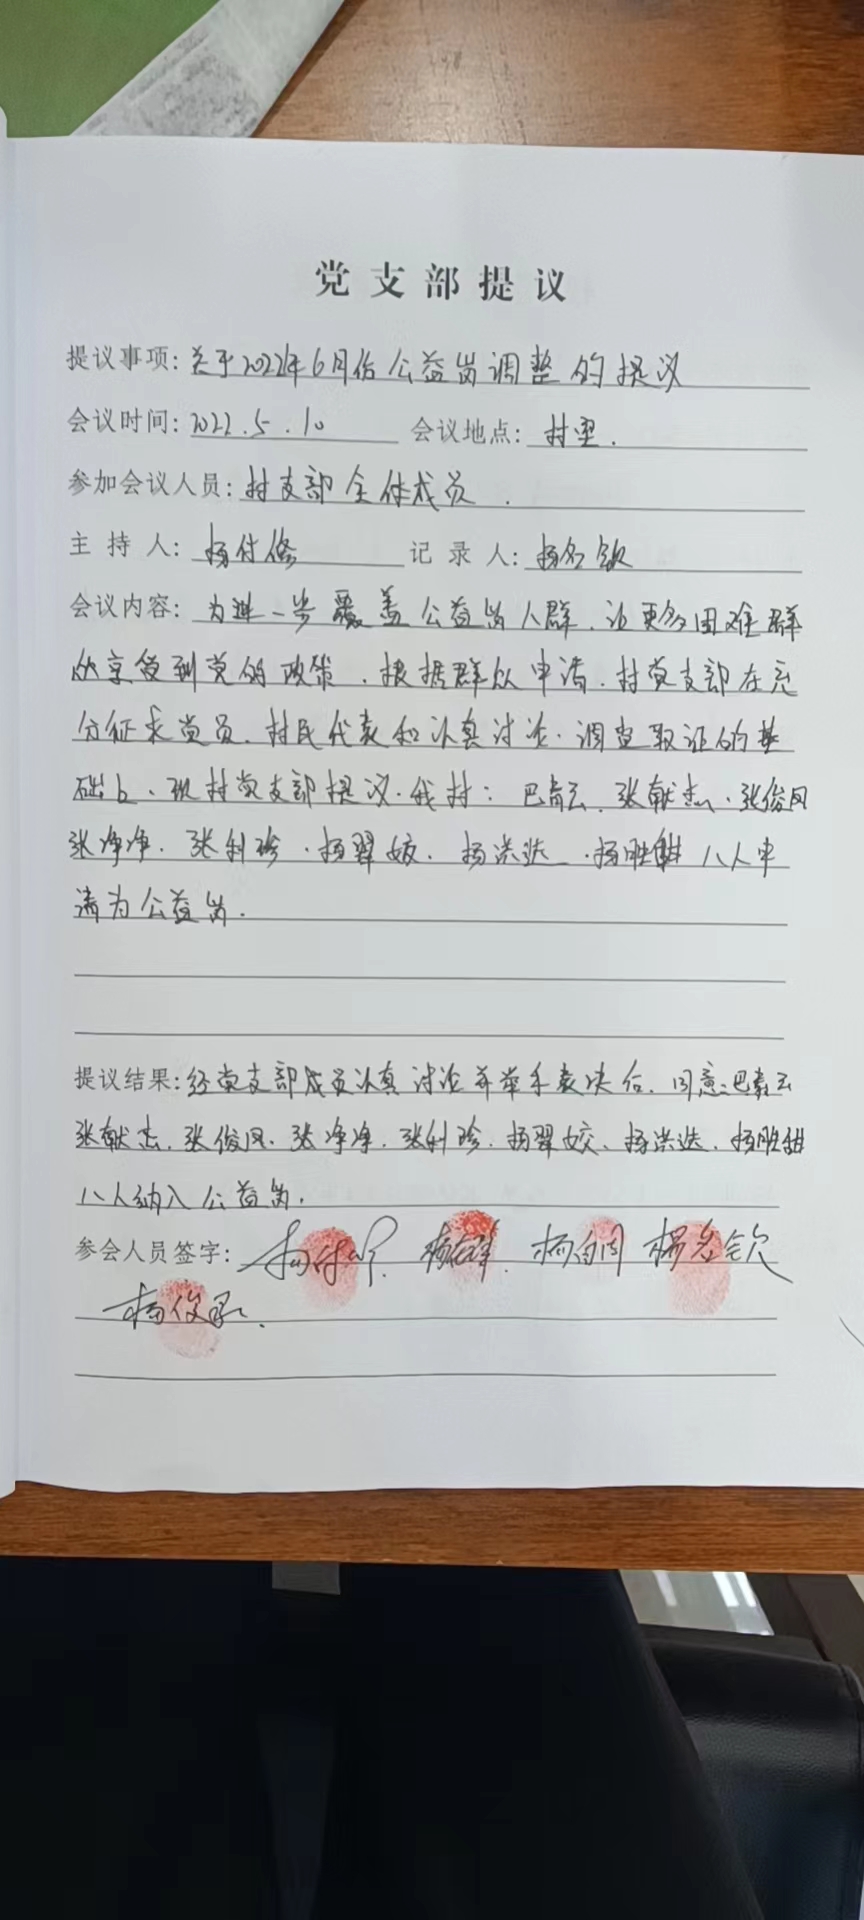 党支部提议
提议事项: 关于2022年6月份公益岗调整的提议
会议时间: 2022.5.10 会议地点: 村室.
参加会议人员: 村支部全体成员.
主持人: 杨付 记录人: 杨名钦
会议内容: 为进一步覆盖公益岗人群.让更多困难群
众享受到党的政策.根据群众申请.村党支部在充
分征求党员.村民代表和认真讨论.调查取证的基
础上.现村党支部提议.我村: 巴云.张献杰.张俊风
张净净.张利珍.杨翠姣.杨洪选.杨胜 八人申
请为公益岗.
提议结果: 经党支部成员认真讨论并举手表决后.同意:巴云
张献杰.张俊风.张净净.张利珍.杨翠姣.杨洪选.杨胜
八人纳入公益岗.
参会人员签字: 杨付 杨 杨 杨名钦
杨俊